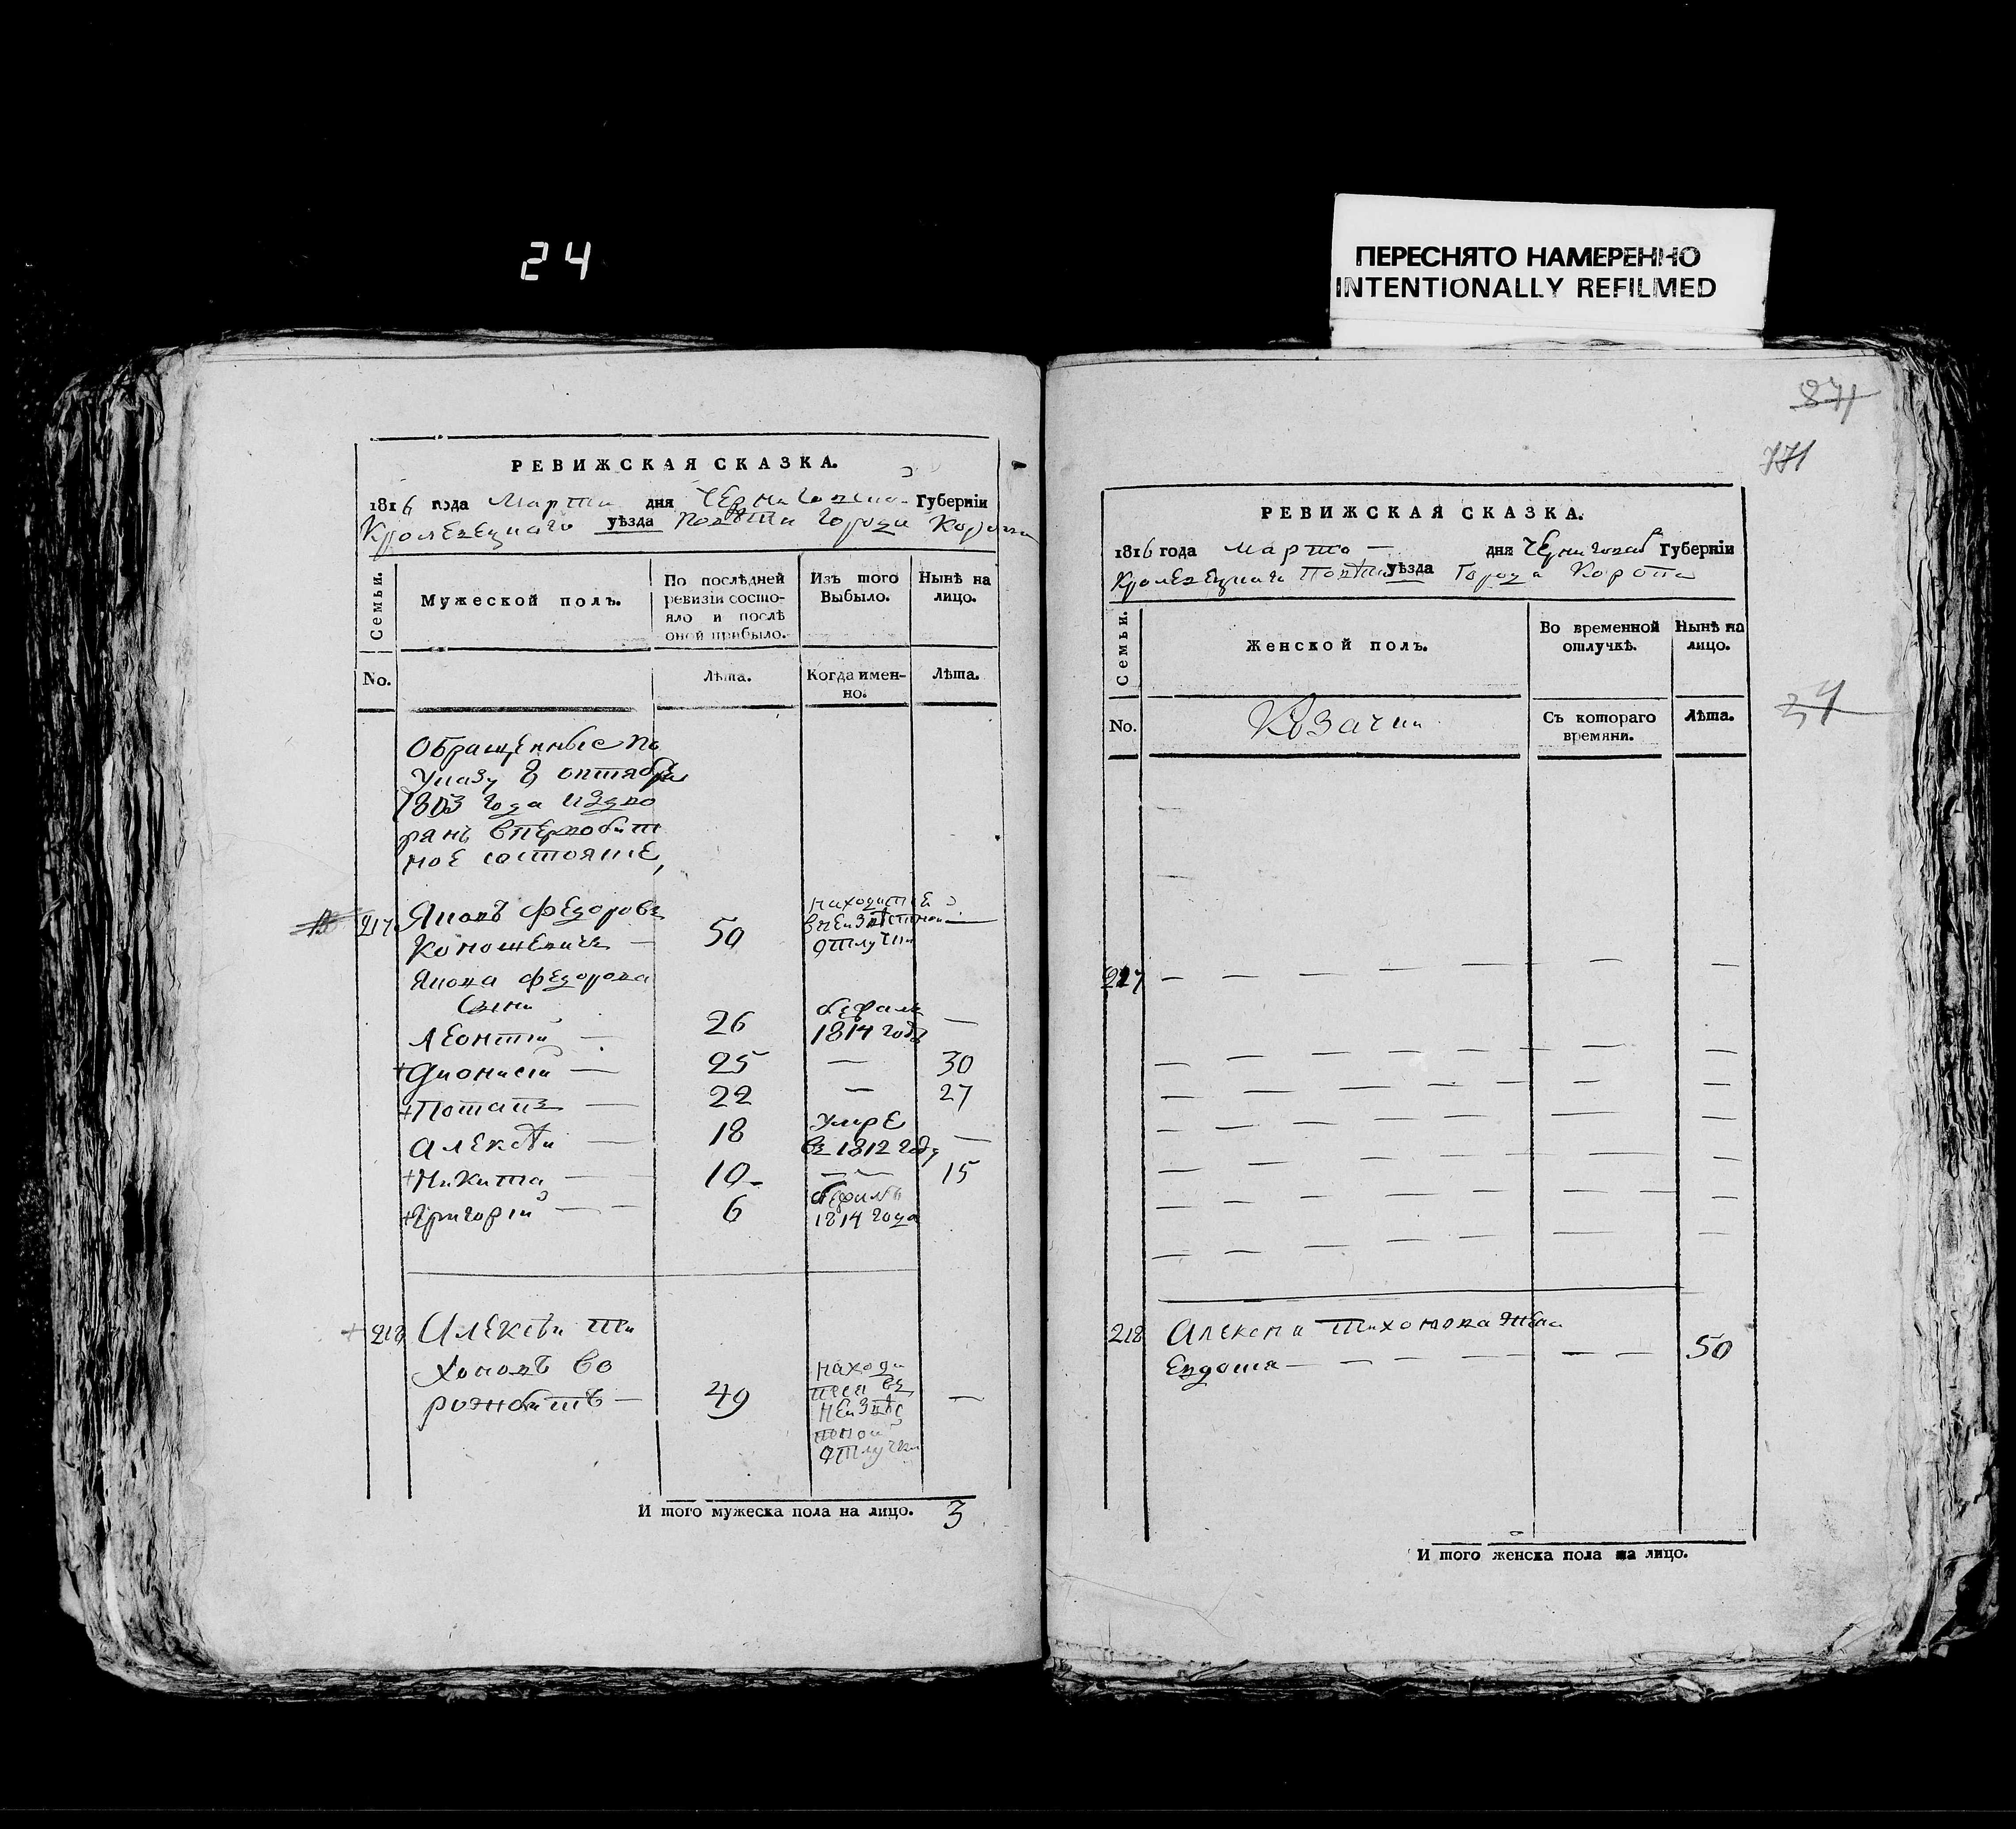 24
ПЕРЕСНЯТО НАМЕРЕННО
INTENTIONALLY REFILMED
РЕВИЖСКАЯ СКАЗКА.
1816 года Марта дня Черниговской Губерніи
Кролевецкаго уѣзда Повѣта города Коропа
Семьи.
Мужеской полъ.
По послѣдней ревизіи состояло и послѣ оной прибыло.
Изъ того Выбыло.
Нынѣ на лицо.
No.
Лѣта.
Когда именно.
Лѣта.
Обращенные по
Указу 8 октября
1803 года
рянъ в первобыт
ное состояние,
217 Яковъ Федоровъ
50
находится
в неизвѣстной
отлучки
Якова Федорова
Сыни
Леонтій — 26
1814 году —
+Дионисій — 25 — 30
+Потапъ — 22 — 27
Алексѣй — 18 Умре
въ 1812 году —
+Никита — 10 — 15
+Григорій — 6
1814 года
+ 218 Алексѣй Ти
хоновъ Во
рожбитъ — 49
находи
тся въ
неизвѣс
тной
отлучки
—
И того мужеска пола на лицо. 3
871
771
34
РЕВИЖСКАЯ СКАЗКА.
1816 года марта — дня Черниговской Губерніи
Кролевецкаго Повѣта уѣзда Города Коропа
Семьи.
Женской полъ.
Во временной отлучкѣ.
Нынѣ на лицо.
No.
Козачки
Съ котораго времяни.
Лѣта.
217 — — — — — — — —
218 Алексѣя Тихонова жена
Евдокия — — — — — — 50
И того женска пола на лицо.